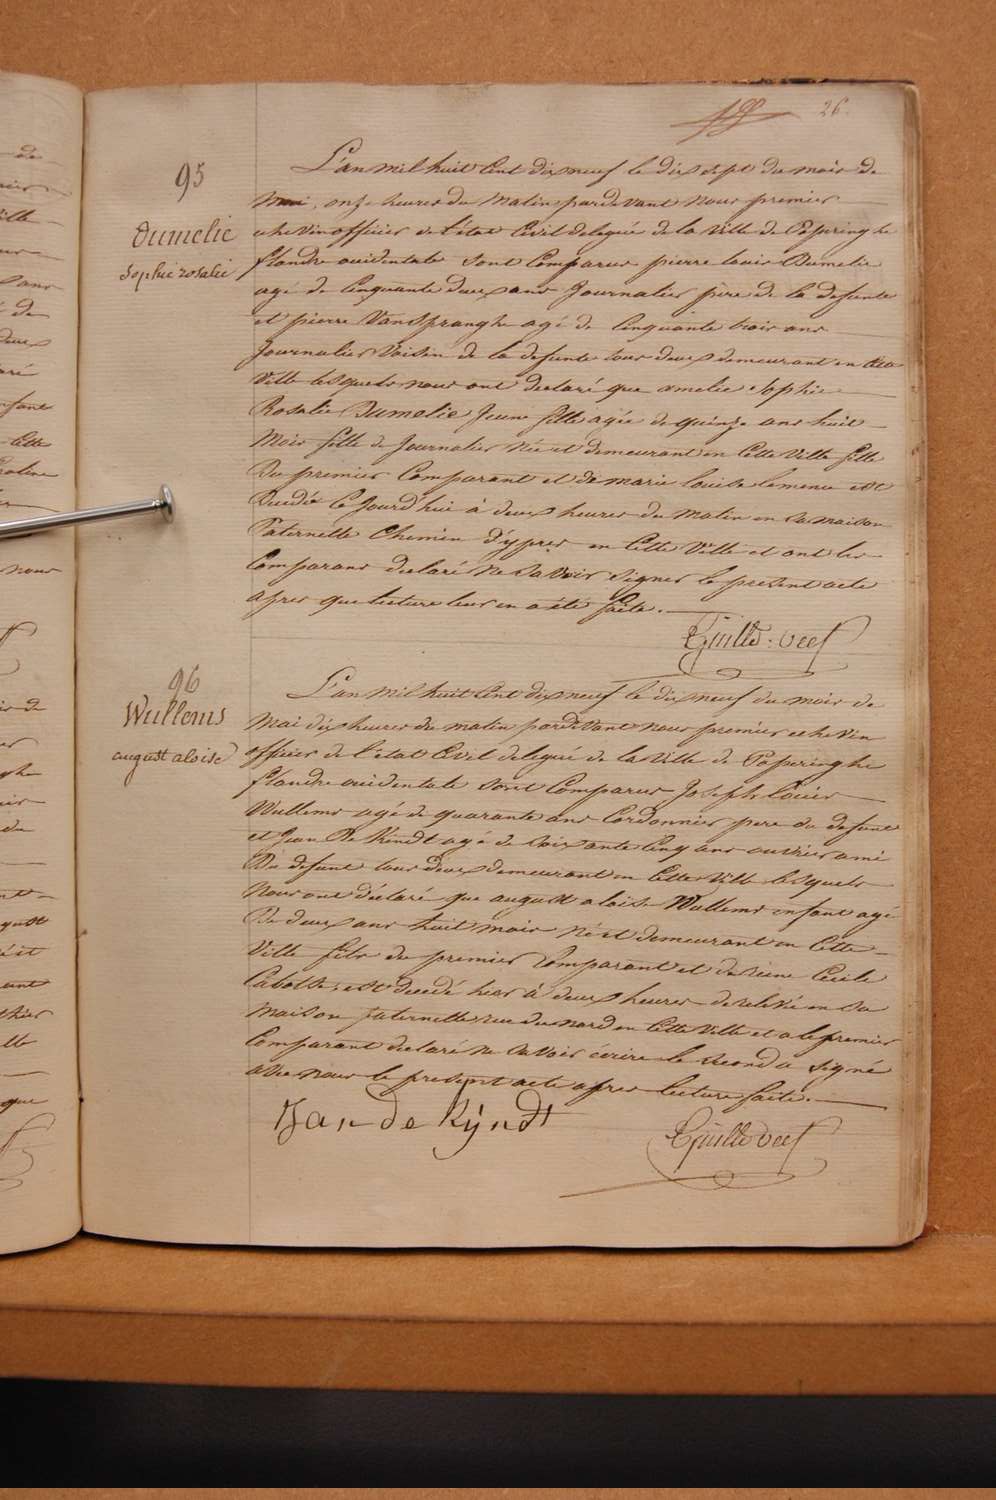 26.
95
Dumelie
Sophie rosalie
L'an mil huit Cent dix neuf le dix sept du mois de
Mai, onze heures du Matin pardevant Nous premier
echevin officier de l'état Civil delegué de la Ville de Poperinghe
flandre occidentale sont Comparus pierre louis Dumelie
agé de Cinquante deux ans Journalier père de la defunte
et pierre Vanspranghe agé de Cinquante trois ans
Journalier Voisin de la defunte tous deux demeurant en cette
Ville lesquels nous ont declaré que amelie Sophie
Rosalie Dumelie Jeune fille agée de quinze ans huit
Mois fille de Journalier Née et demeurant en Cette Ville fille
Du premier Comparant et de marie louise lemenu est
Decedée Ce Jourd'hui à deux heures du Matin en sa maison
Paternelle Chemin d'ypres en Cette Ville et ont les
Comparans declaré Ne Savoir Signer le present acte
apres que lecture leur en a été faite.
96
Wullems
august aloise
L'an Mil huit Cent dix neuf le dix neuf du mois de
Mai dix heures du matin pardevant nous premier echevin
officier de l'état Civil delegué de la Ville de Poperinghe
flandre occidentale sont Comparus Joseph louis
Wullems agé de quarante ans Cordonnier pere du defunt
et Jean De Kindt agé de Soixante Cinq ans ouvrier ami
Du defunt tous deux demeurant en Cette Ville lesquels
Nous ont déclaré que august aloise Wullems enfant agé
De deux ans huit mois Né et demeurant en Cette
Ville fils du premier Comparant et de Cecile
est decedé hier à deux heures de relevé en sa
Maison paternelle rue du nord en Cette Ville et a le premier
Comparant declaré Ne Savoir écrire le Second a Signé
avec nous le present acte apres lecture faite.
Jan de Kijndt